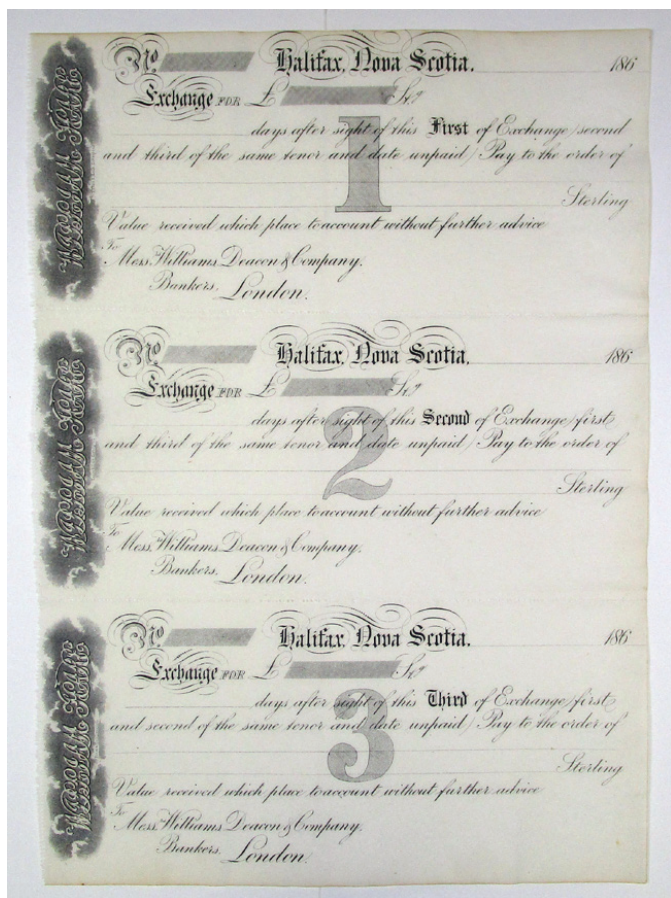 No Halifax, Nova Scotia. 186
Exchange FOR £ Stg
1
days after sight of this First of Exchange (second
and third of the same tenor and date unpaid) Pay to the order of
Sterling
Value received which place to account without further advice
To Mess. Williams Deacon & Company.
Bankers, London.
No Halifax, Nova Scotia. 186
Exchange FOR £ Stg
2
days after sight of this Second of Exchange (first
and third of the same tenor and date unpaid) Pay to the order of
Sterling
Value received which place to account without further advice
To Mess. Williams Deacon & Company.
Bankers, London.
No Halifax, Nova Scotia. 186
Exchange FOR £ Stg
3
days after sight of this Third of Exchange (first
and second of the same tenor and date unpaid) Pay to the order of
Sterling
Value received which place to account without further advice
To Mess. Williams Deacon & Company.
Bankers, London.